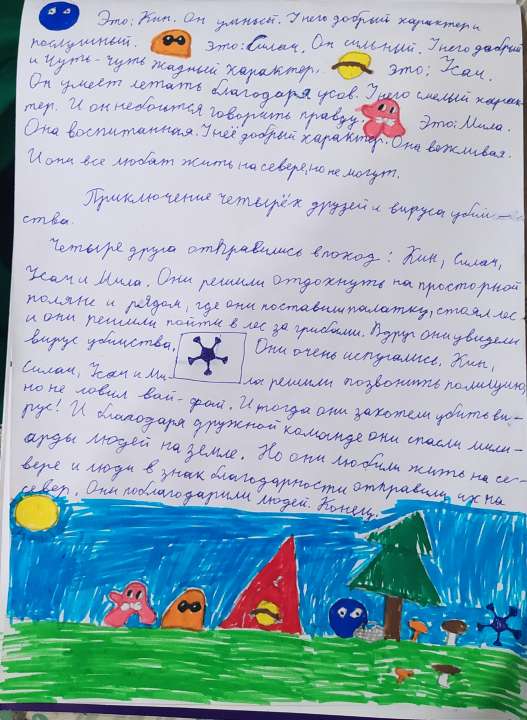 Это: Кин. Он умный. У него добрый характер и
послушный. Это: Силач. Он сильный. У него добрый
и чуть-чуть жадный характер. Это: Усач.
Он умеет летать благодаря усов. У него смелый харак-
тер. И он не боится говорить правду. Это: Мила.
Она воспитанная. У неё добрый характер. Она вежливая.
И они все любят жить на севере, но не могут.
Приключение четырёх друзей и вируса убий-
ства.
Четыре друга отправились в поход: Кин, Силач,
Усач и Мила. Они решили отдохнуть на просторной
поляне и рядом, где они поставили палатку, стоял лес
и они решили пойти в лес за грибами. Вдруг они увидели
вирус убийства. Они очень испугались. Кин,
Силач, Усач и Ми- ла решили позвонить полицию,
но не ловил вай-фай. И тогда они захотели убить ви-
рус! И благодаря дружной команде они спасли мили-
арды людей на земле. Но они любили жить на се-
вере и люди в знак благодарности отправили их на
север. Они поблагодарили людей. Конец.